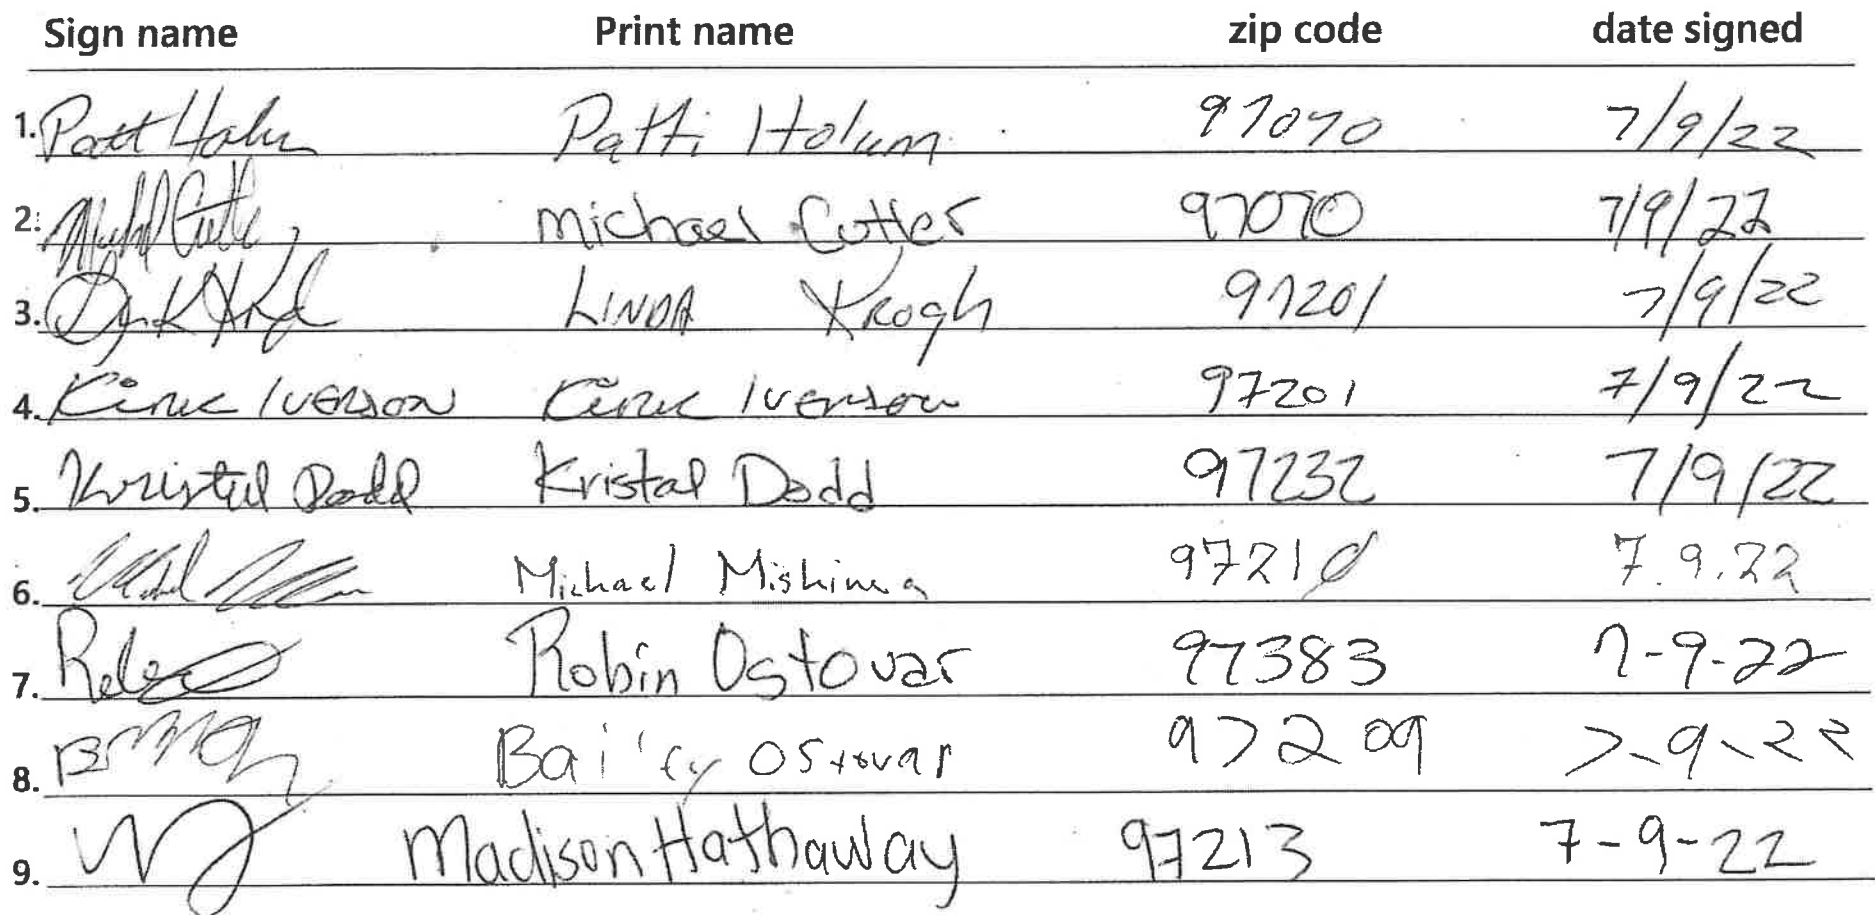 Sign name Print name zip code date signed
1. Patt Holm Patti Holum 97070 7/9/22
2. Michael Cutler 97070 7/9/22
3. LINDA Krogh 97201 7/9/22
4. Kirk Iverson Kirk Iverson 97201 7/9/22
5. Kristal Dodd Kristal Dodd 97232 7/9/22
6. Michael Mishima 97210 7.9.22
7. Robin Ostovar 97383 7-9-22
8. Bailey Ostovar 97209 7-9-22
9. Madison Hathaway 97213 7-9-22